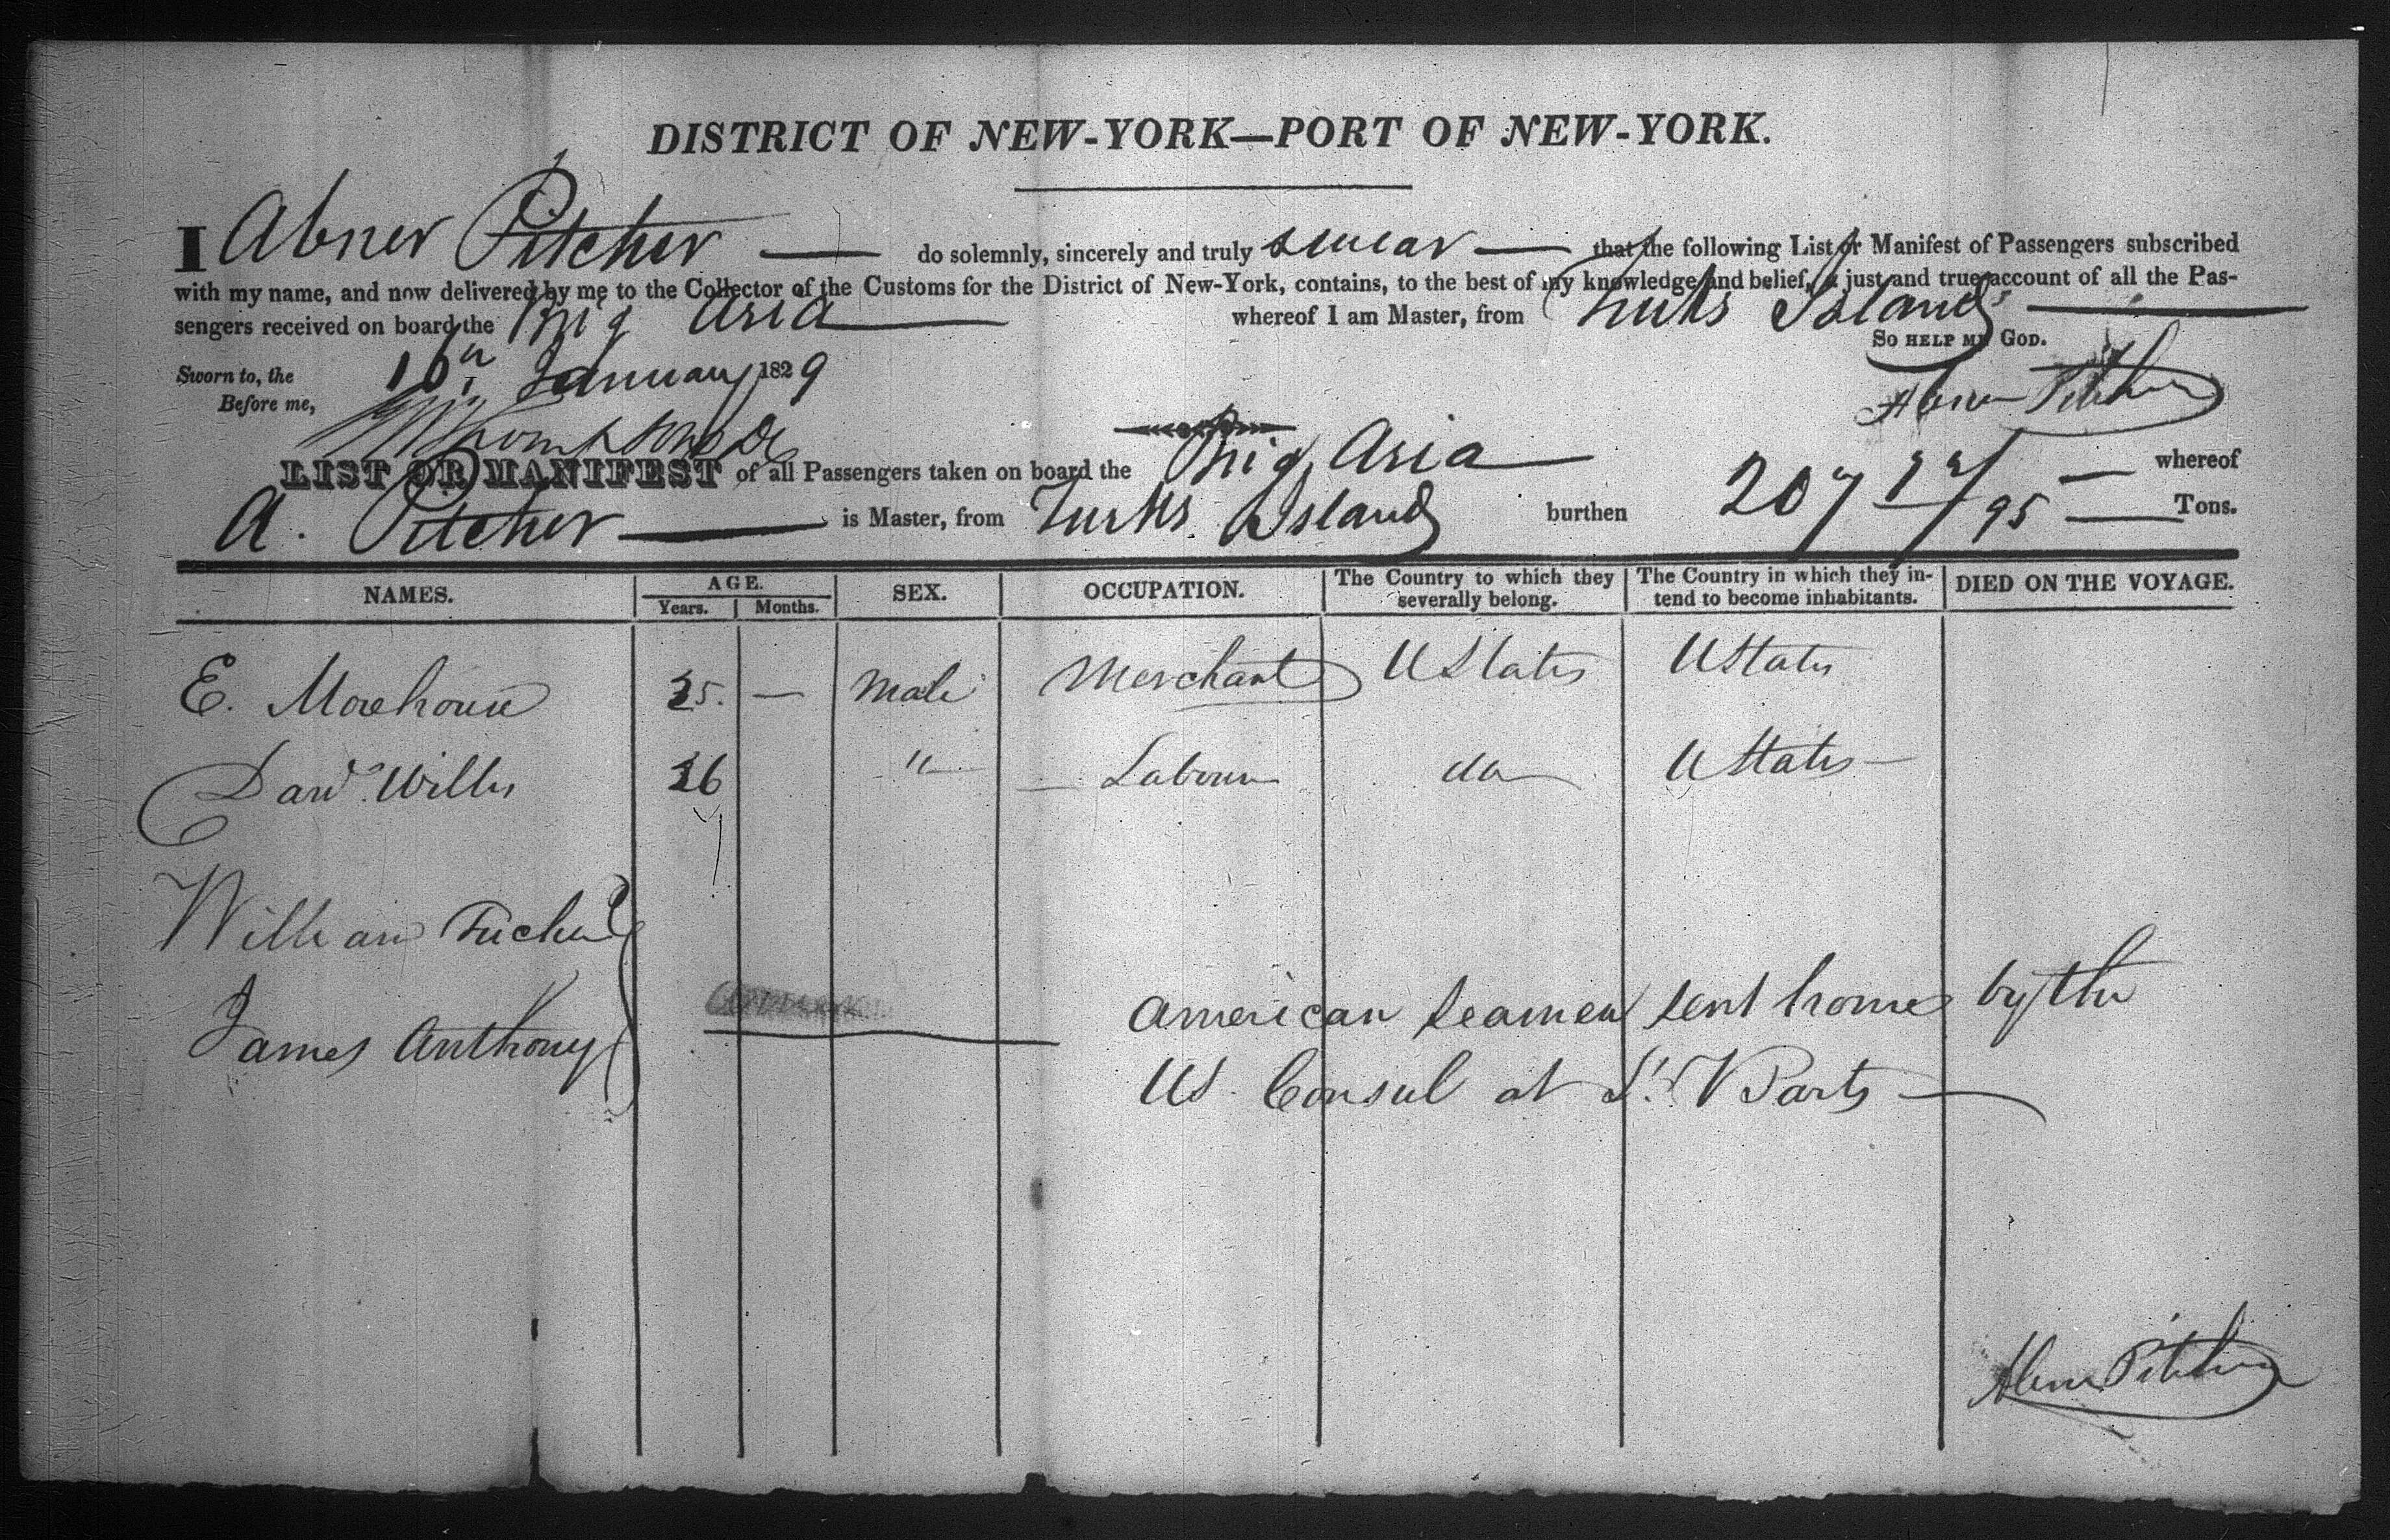 DISTRICT OF NEW-YORK—PORT OF NEW-YORK.
I Abner Pitcher — do solemnly, sincerely and truly swear — that the following List or Manifest of Passengers subscribed
with my name, and now delivered by me to the Collector of the Customs for the District of New-York, contains, to the best of my knowledge and belief, a just and true account of all the Pas-
sengers received on board the Brig Asia whereof I am Master, from Turks Island
So HELP ME GOD.
Sworn to, the 16th January 1829
Before me,
Abner Pitcher
LIST OR MANIFEST of all Passengers taken on board the Brig Asia — whereof
A. Pitcher — is Master, from Turks Island burthen 207 /95 — Tons.
NAMES. AGE. SEX. OCCUPATION. The Country to which they severally belong. The Country in which they in-tend to become inhabitants. DIED ON THE VOYAGE.
Years. Months.
E. Morehouse 35. — Male Merchant U States U States
Willis 36 " Labourer do U States —
William
James Anthony
American seamen sent home by the
US. Consul at St. Barts —
Abner Pitcher